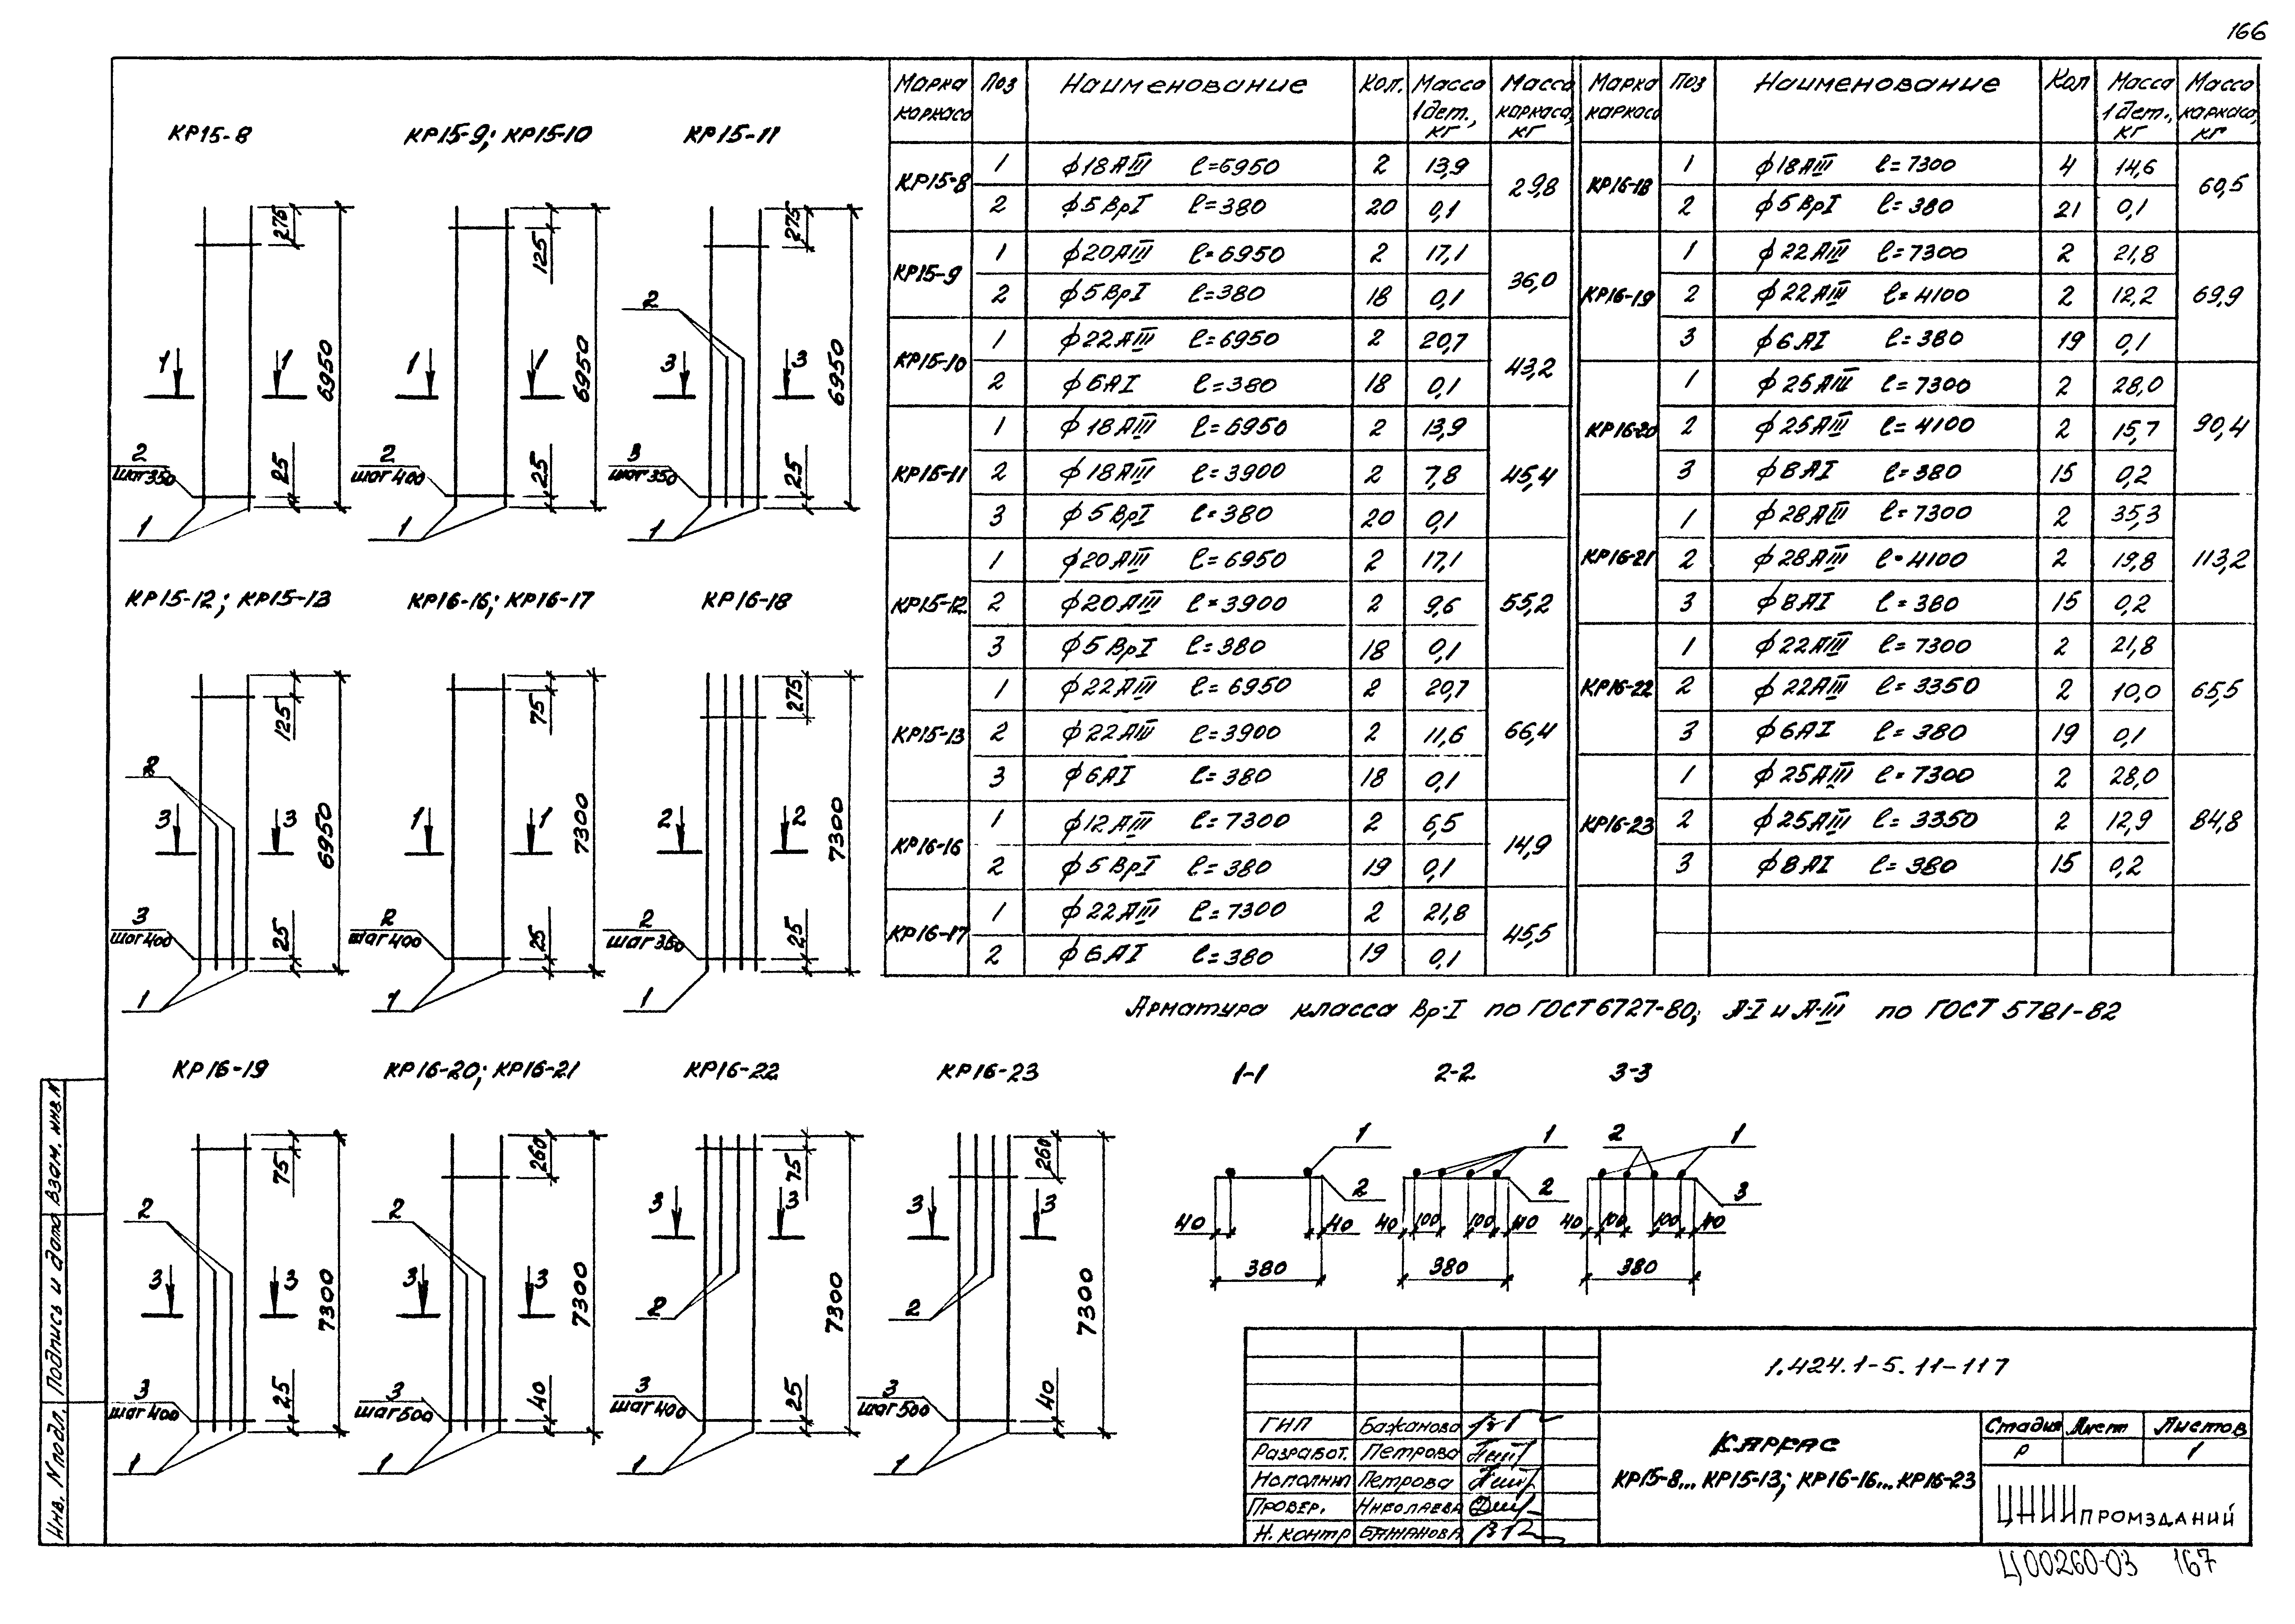 166
КР15-8
КР15-9; КР15-10
КР15-11
275
6950
1 1
2
шаг 350
25
1
125
6950
1 1
2
шаг 400
25
1
275
6950
2
3 3
3
шаг 350
25
1
КР15-12; КР15-13
КР16-16; КР16-17
КР16-18
125
6950
2
3 3
3
шаг 400
25
1
75
7300
1 1
2
шаг 400
25
1
275
7300
2 2
2
шаг 350
25
1
КР16-19
КР16-20; КР16-21
КР16-22
КР16-23
75
7300
2
3 3
3
шаг 400
25
1
260
7300
2
3 3
3
шаг 500
40
1
75
7300
3 3
2
3
шаг 400
25
1
260
7300
3 3
2
3
шаг 500
40
1
Марка каркаса Поз Наименование Кол. Масса 1 дет., кг Масса каркаса, кг
КР15-8 1 ϕ18АIII ℓ=6950 2 13,9 29,8
2 ϕ5ВрI ℓ=380 20 0,1
КР15-9 1 ϕ20АIII ℓ=6950 2 17,1 36,0
2 ϕ5ВрI ℓ=380 18 0,1
КР15-10 1 ϕ22АIII ℓ=6950 2 20,7 43,2
2 ϕ6АI ℓ=380 18 0,1
КР15-11 1 ϕ18АIII ℓ=6950 2 13,9 45,4
2 ϕ18АIII ℓ=3900 2 7,8
3 ϕ5ВрI ℓ=380 20 0,1
КР15-12 1 ϕ20АIII ℓ=6950 2 17,1 55,2
2 ϕ20АIII ℓ=3900 2 9,6
3 ϕ5ВрI ℓ=380 18 0,1
КР15-13 1 ϕ22АIII ℓ=6950 2 20,7 66,4
2 ϕ22АIII ℓ=3900 2 11,6
3 ϕ6АI ℓ=380 18 0,1
КР16-16 1 ϕ12АIII ℓ=7300 2 6,5 14,9
2 ϕ5ВрI ℓ=380 19 0,1
КР16-17 1 ϕ22АIII ℓ=7300 2 21,8 45,5
2 ϕ6АI ℓ=380 19 0,1
Марка каркаса Поз Наименование Кол Масса 1 дет., кг Масса каркаса, кг
КР16-18 1 ϕ18АIII ℓ=7300 4 14,6 60,5
2 ϕ5ВрI ℓ=380 21 0,1
КР16-19 1 ϕ22АIII ℓ=7300 2 21,8 69,9
2 ϕ22АIII ℓ=4100 2 12,2
3 ϕ6АI ℓ=380 19 0,1
КР16-20 1 ϕ25АIII ℓ=7300 2 28,0 90,4
2 ϕ25АIII ℓ=4100 2 15,7
3 ϕ8АI ℓ=380 15 0,2
КР16-21 1 ϕ28АIII ℓ=7300 2 35,3 113,2
2 ϕ28АIII ℓ=4100 2 19,8
3 ϕ8АI ℓ=380 15 0,2
КР16-22 1 ϕ22АIII ℓ=7300 2 21,8 65,5
2 ϕ22АIII ℓ=3350 2 10,0
3 ϕ6АI ℓ=380 19 0,1
КР16-23 1 ϕ25АIII ℓ=7300 2 28,0 84,8
2 ϕ25АIII ℓ=3350 2 12,9
3 ϕ8АI ℓ=380 15 0,2
Арматура класса Вр-I по ГОСТ 6727-80; А-I и А-III по ГОСТ 5781-82
1-1
2-2
3-3
1
2
40 40
380
1
2
40 100 100 40
380
2 1
3
40 100 100 40
380
1.424.1-5.11-117
ГИП Бажанова
Разработ. Петрова
Исполнил Петрова
Провер. Николаева
Н. контр Бажанова
Каркас
КР15-8... КР15-13; КР16-16... КР16-23
Стадия Лист Листов
Р 1
ЦНИИпромзданий
Инв. N подл. Подпись и дата Взам. инв. N
Ц00260-03 167